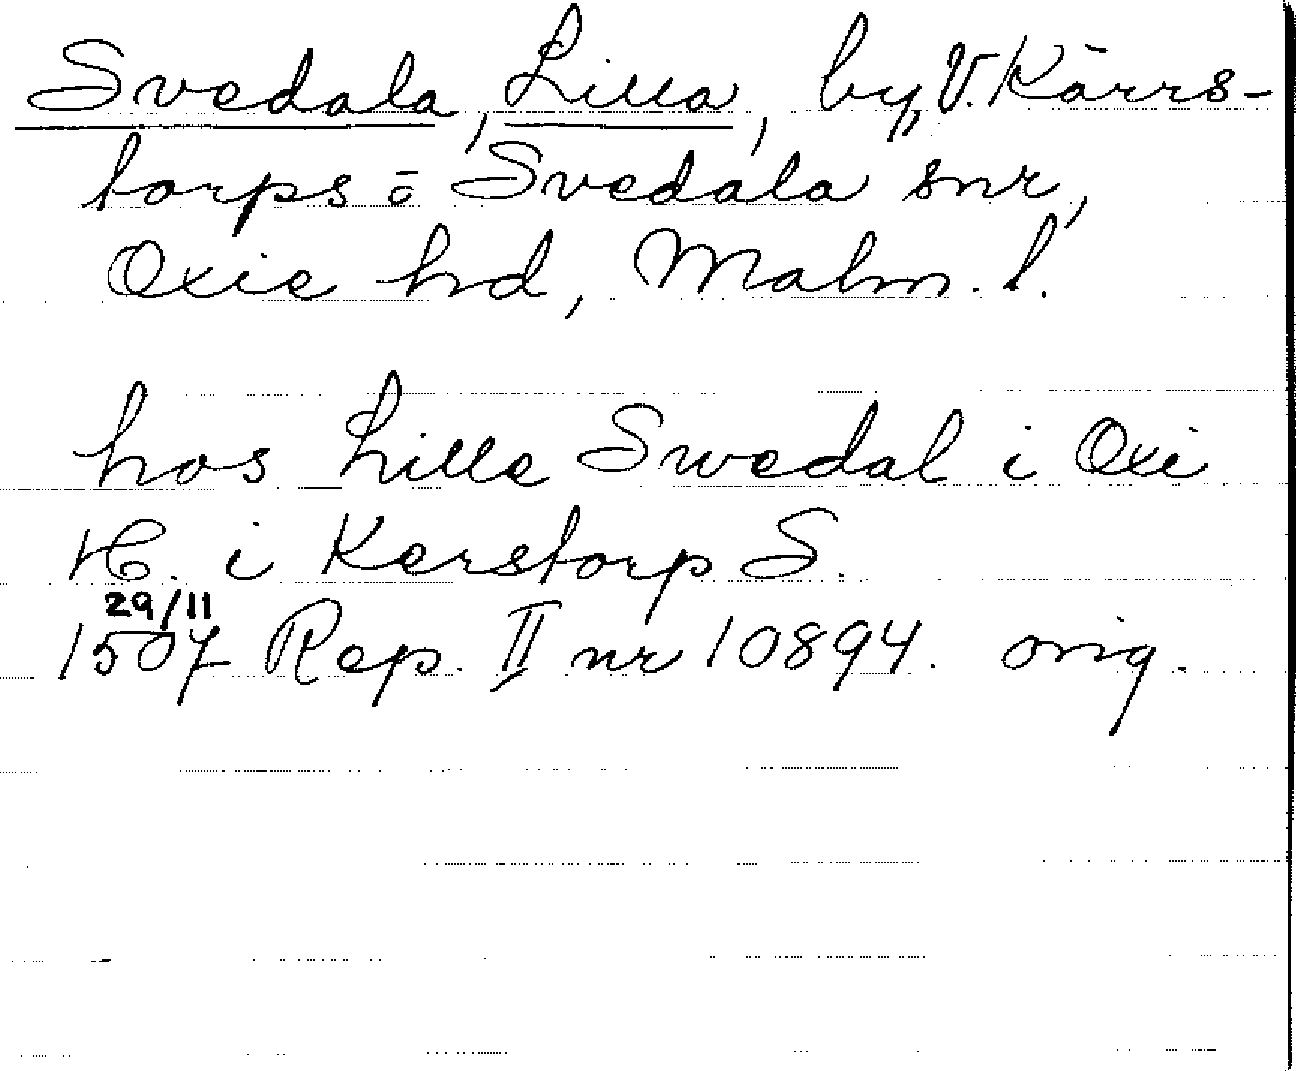 Svedala, Lilla, by, V. Kärrs-
torps o Svedala snr,
Oxie hd, Malm. l.
hos Lille Swedal i Oxi
H. i Kerstorp S.
29/11
1507 Rep. II nr 10894. orig.